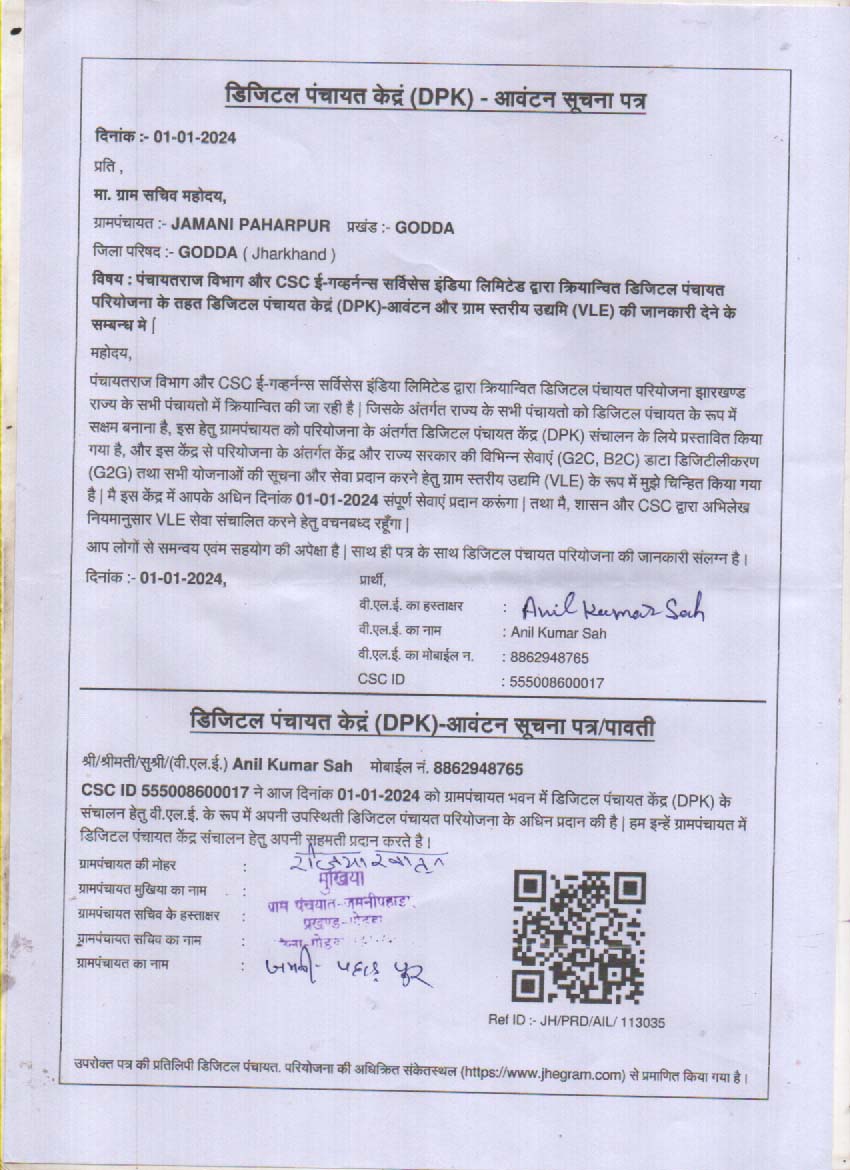 डिजिटल पंचायत केद्रं (DPK) - आवंटन सूचना पत्र
दिनांक :- 01-01-2024
प्रति ,
मा. ग्राम सचिव महोदय,
ग्रामपंचायत :- JAMANI PAHARPUR प्रखंड :- GODDA
जिला परिषद :- GODDA ( Jharkhand )
विषय : पंचायतराज विभाग और CSC ई-गव्हर्नन्स सर्विसेस इंडिया लिमिटेड द्वारा क्रियान्वित डिजिटल पंचायत
परियोजना के तहत डिजिटल पंचायत केद्रं (DPK)-आवंटन और ग्राम स्तरीय उद्यमि (VLE) की जानकारी देने के
सम्बन्ध मे |
महोदय,
पंचायतराज विभाग और CSC ई-गव्हर्नन्स सर्विसेस इंडिया लिमिटेड द्वारा क्रियान्वित डिजिटल पंचायत परियोजना झारखण्ड
राज्य के सभी पंचायतो में क्रियान्वित की जा रही है | जिसके अंतर्गत राज्य के सभी पंचायतो को डिजिटल पंचायत के रूप में
सक्षम बनाना है, इस हेतु ग्रामपंचायत को परियोजना के अंतर्गत डिजिटल पंचायत केंद्र (DPK) संचालन के लिये प्रस्तावित किया
गया है, और इस केंद्र से परियोजना के अंतर्गत केंद्र और राज्य सरकार की विभिन्न सेवाएं (G2C, B2C) डाटा डिजिटीलीकरण
(G2G) तथा सभी योजनाओं की सूचना और सेवा प्रदान करने हेतु ग्राम स्तरीय उद्यमि (VLE) के रूप में मुझे चिन्हित किया गया
है | मै इस केंद्र में आपके अधिन दिनांक 01-01-2024 संपूर्ण सेवाएं प्रदान करूंगा | तथा मै, शासन और CSC द्वारा अभिलेख
नियमानुसार VLE सेवा संचालित करने हेतु वचनबध्द रहूँगा |
आप लोगों से समन्वय एवंम सहयोग की अपेक्षा है | साथ ही पत्र के साथ डिजिटल पंचायत परियोजना की जानकारी संलग्न है |
दिनांक :- 01-01-2024, प्रार्थी,
वी.एल.ई. का हस्ताक्षर : Anil Kumar Sah
वी.एल.ई. का नाम : Anil Kumar Sah
वी.एल.ई. का मोबाईल न. : 8862948765
CSC ID : 555008600017
डिजिटल पंचायत केद्रं (DPK)-आवंटन सूचना पत्र/पावती
श्री/श्रीमती/सुश्री/(वी.एल.ई.) Anil Kumar Sah मोबाईल नं. 8862948765
CSC ID 555008600017 ने आज दिनांक 01-01-2024 को ग्रामपंचायत भवन में डिजिटल पंचायत केंद्र (DPK) के
संचालन हेतु वी.एल.ई. के रूप में अपनी उपस्थिती डिजिटल पंचायत परियोजना के अधिन प्रदान की है | हम इन्हें ग्रामपंचायत में
डिजिटल पंचायत केंद्र संचालन हेतु अपनी सहमती प्रदान करते है |
ग्रामपंचायत की मोहर :
मुखिया
ग्रामपंचायत मुखिया का नाम :
ग्राम पंचयात-जमनीपहाड़
ग्रामपंचायत सचिव के हस्ताक्षर :
प्रखण्ड-गोड्डा
ग्रामपंचायत सचिव का नाम :
ग्रामपंचायत का नाम : जमनी पहाड़ पुर
Ref ID :- JH/PRD/AIL/ 113035
उपरोक्त पत्र की प्रतिलिपी डिजिटल पंचायत. परियोजना की अधिक्रित संकेतस्थल (https://www.jhegram.com) से प्रमाणित किया गया है |